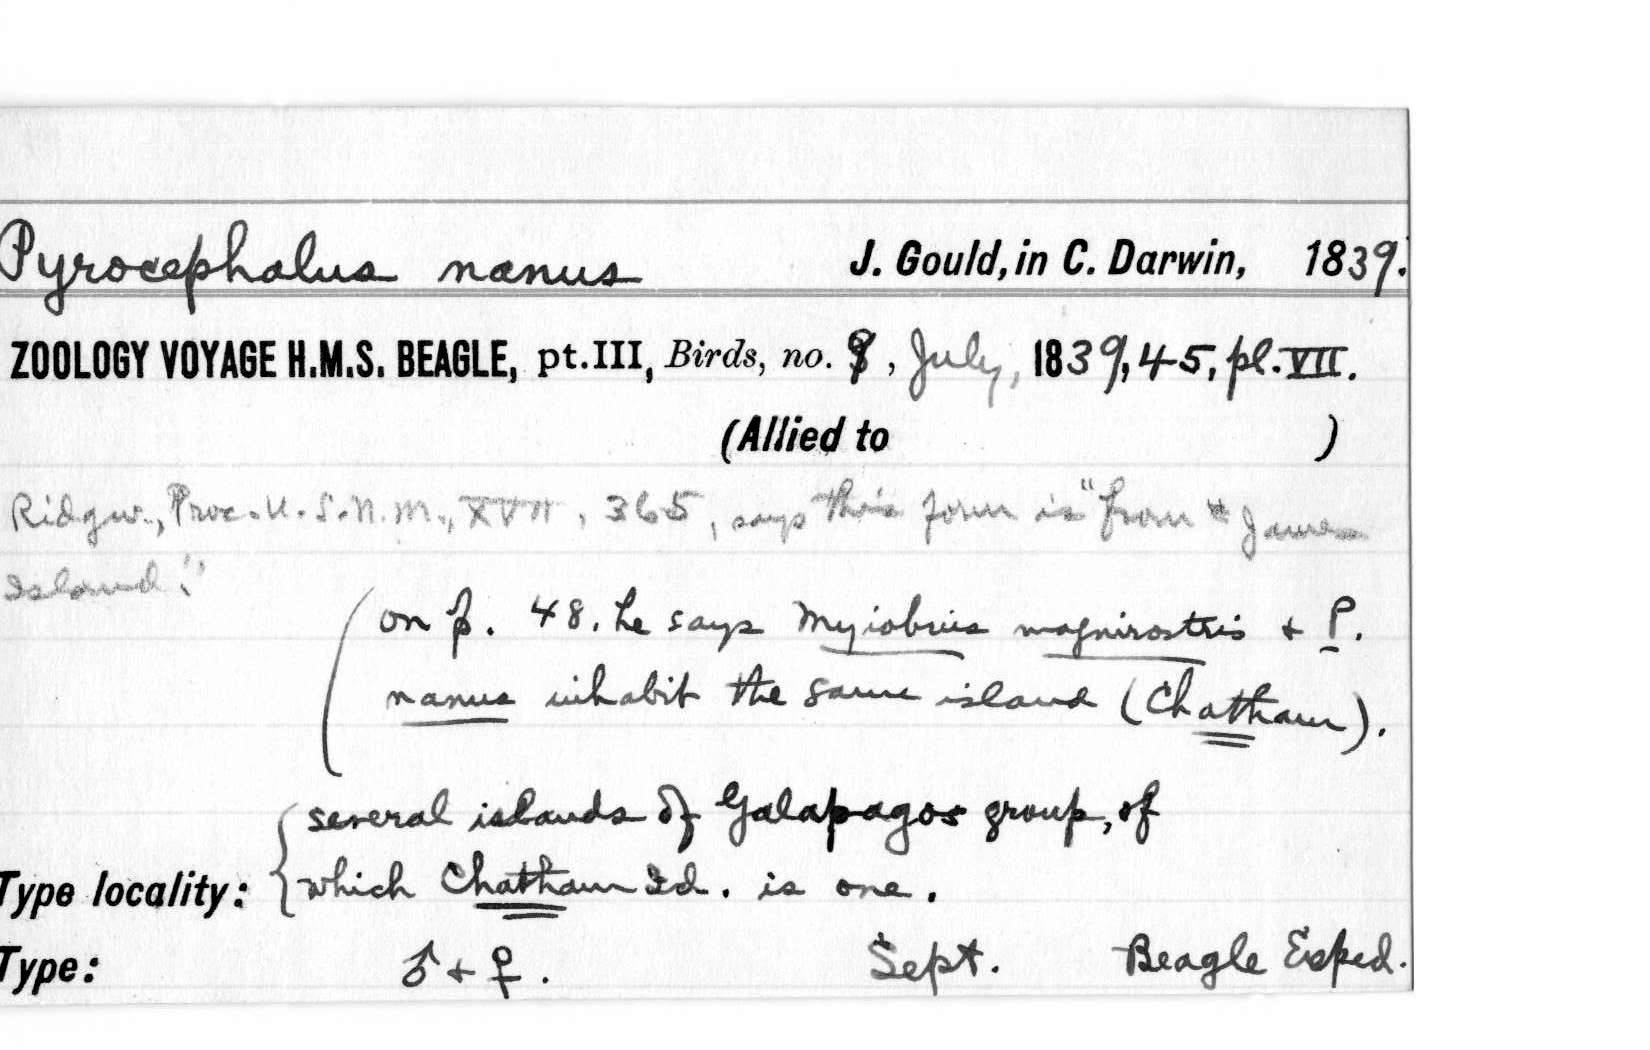 Pyrocephalus nanus J. Gould, in C. Darwin, 1839.
ZOOLOGY VOYAGE H.M.S. BEAGLE, pt. III, Birds, no. , July, 1839, 45, pl. VII.
(Allied to )
Ridgw., Proc. U.S.N.M., XVII, 365, says this form is "from James
Island."
(on p. 48. he says Myiobius magnirostris & P.
nanus inhabit the same island (Chatham).
{several islands of Galapagos group, of
Type locality: {which Chatham Id. is one.
Type: ♂ + ♀. Sept. Beagle Exped.